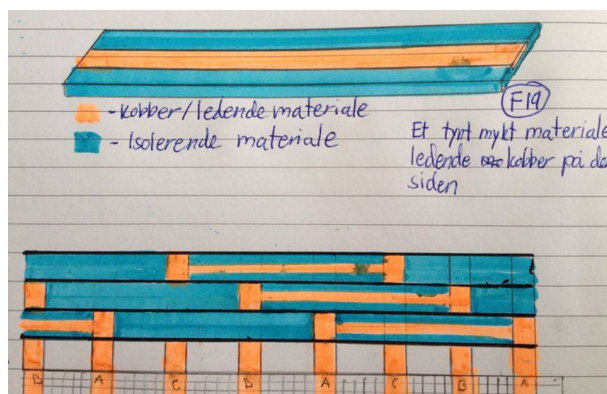 - Kobber/ledende materiale
- Isolerende materiale
F19
Et tynt mykt materiale
ledende kobber på de
siden
B A C B A C B A